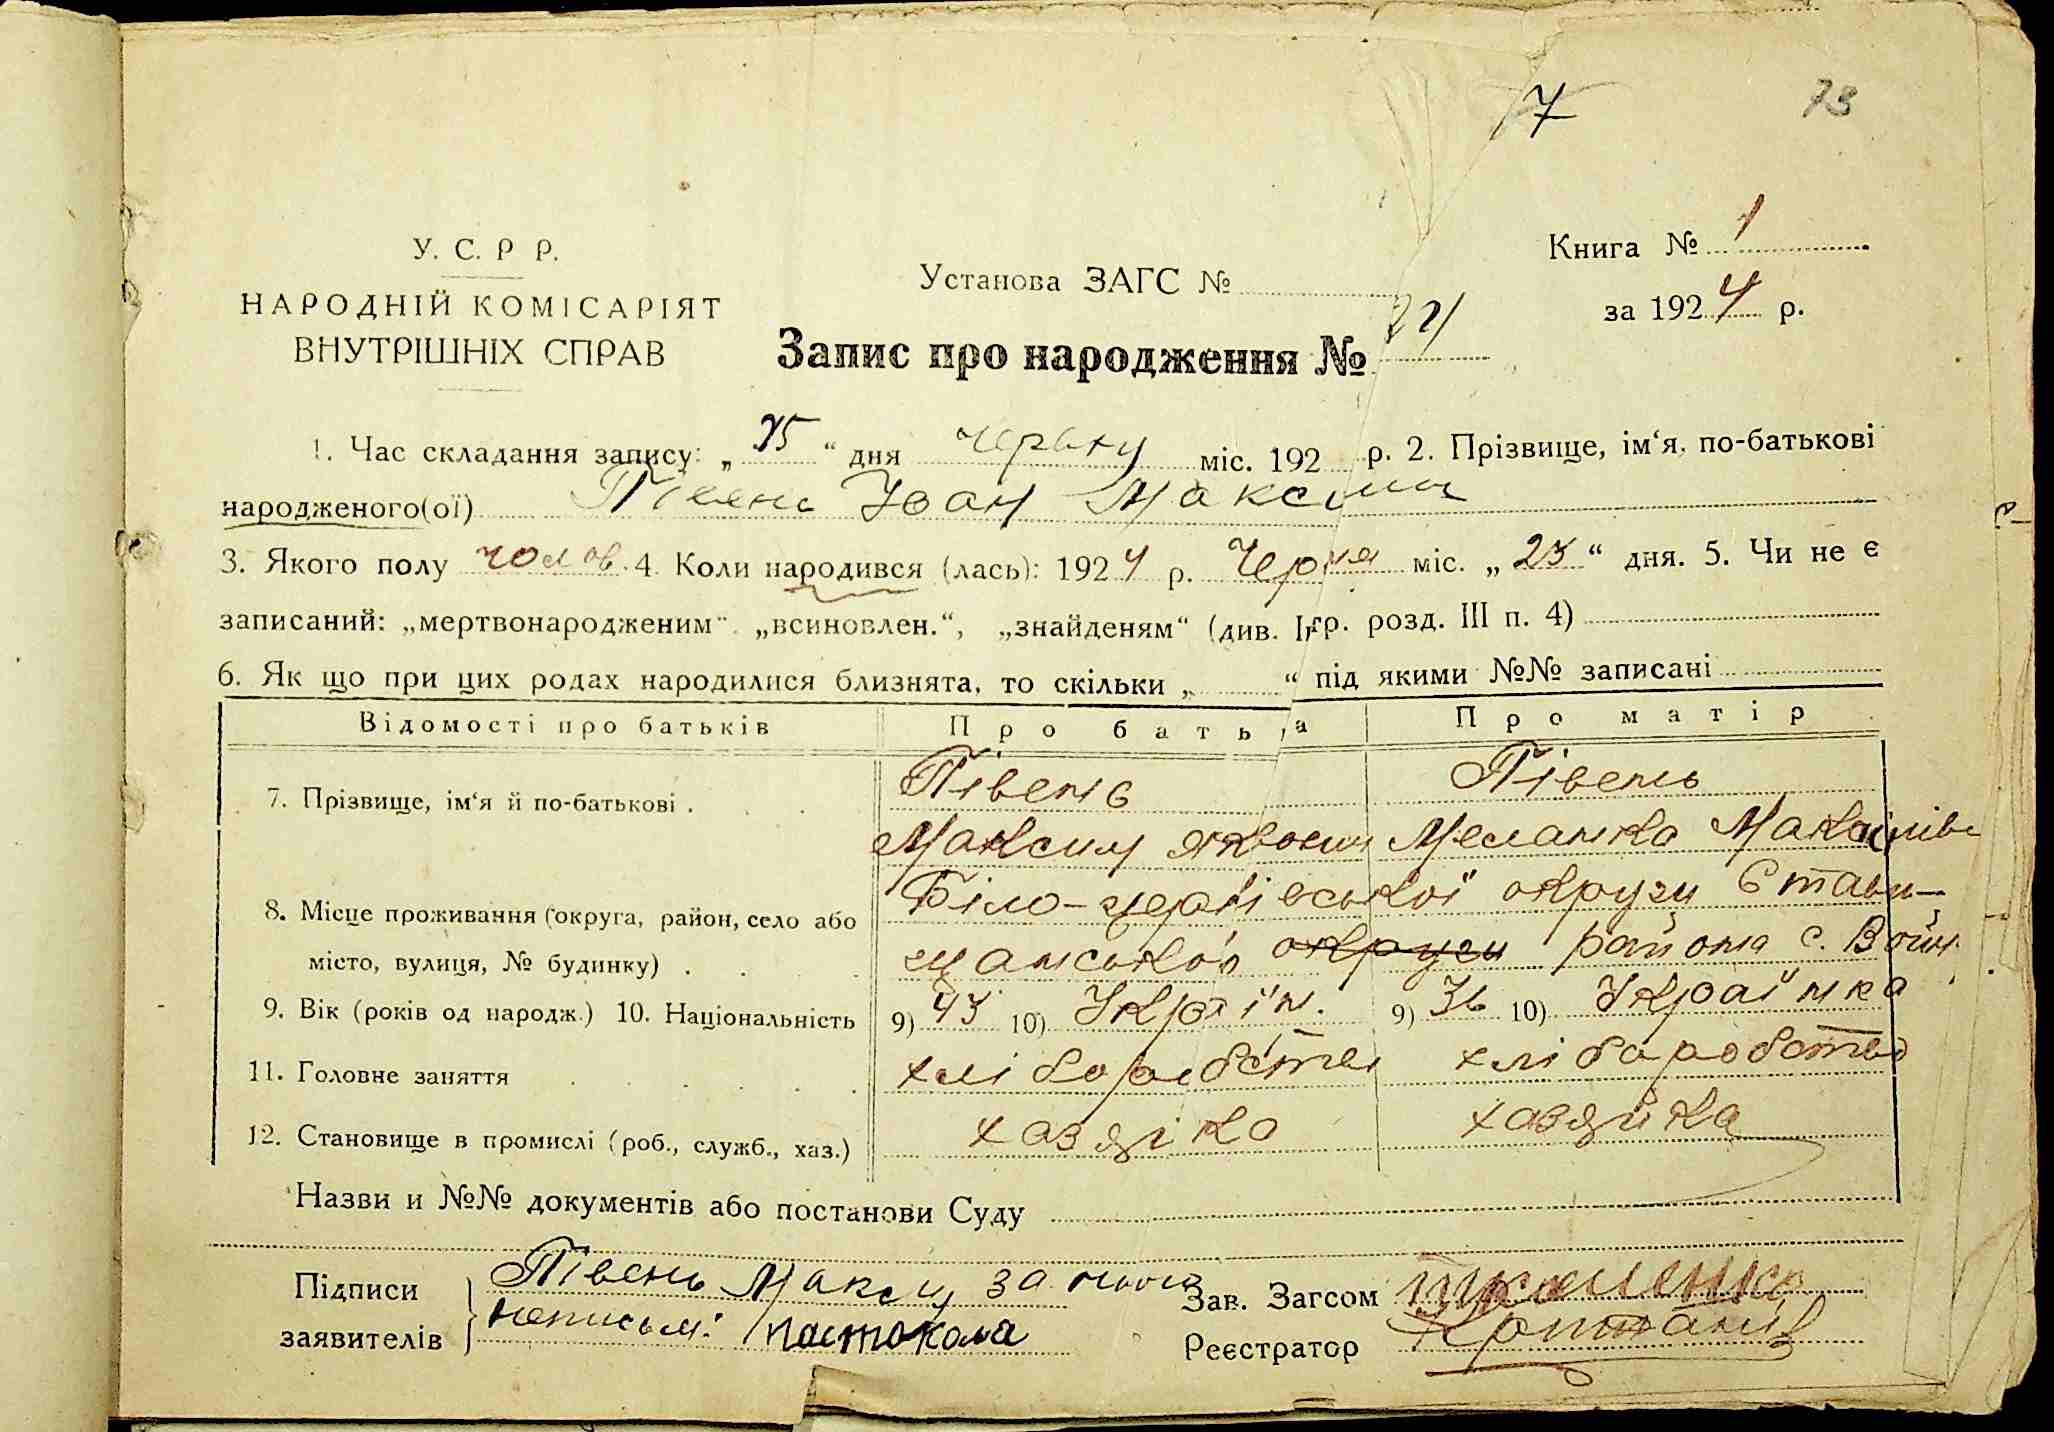 7
73
У. С. Р Р.
НАРОДНІЙ КОМІСАРІЯТ
ВНУТРІШНІХ СПРАВ
Установа ЗАГС №
Книга № 1
за 1924 р.
Запис про народження № 24
1. Час складання запису: „25“ дня червня міс. 192 р. 2. Прізвище, ім‘я, по-батькові
народженого(ої) Півень Іван Максим
3. Якого полу чолов. 4. Коли народився (лась): 1924 р. Черня міс. „23“ дня. 5. Чи не є
записаний: „мертвонародженим“ „всиновлен.“, „знайденям“ (див. Ігр. розд. III п. 4)
6. Як що при цих родах народилися близнята, то скільки „ “ під якими №№ записані
Відомості про батьків Про батьа Про матір
7. Прізвище, ім‘я й по-батькові . Півень Півень
Максим Меланка Максимів
8. Місце проживання (округа, район, село або Біло-церківської округи Стави-
місто, вулиця, № будинку) . щанської округи района с.
9. Вік (років од народж.) 10. Національність 9) 43 10) Україн. 9) 36 10) Українка
11. Головне заняття хліборобство хлібаробство
12. Становище в промислі (роб., служб., хаз.) хазяіка хазяйка
Назви и №№ документів або постанови Суду
Підписи Півень Макси за
заявителів неписьм:
Зав. Загсом
Реєстратор